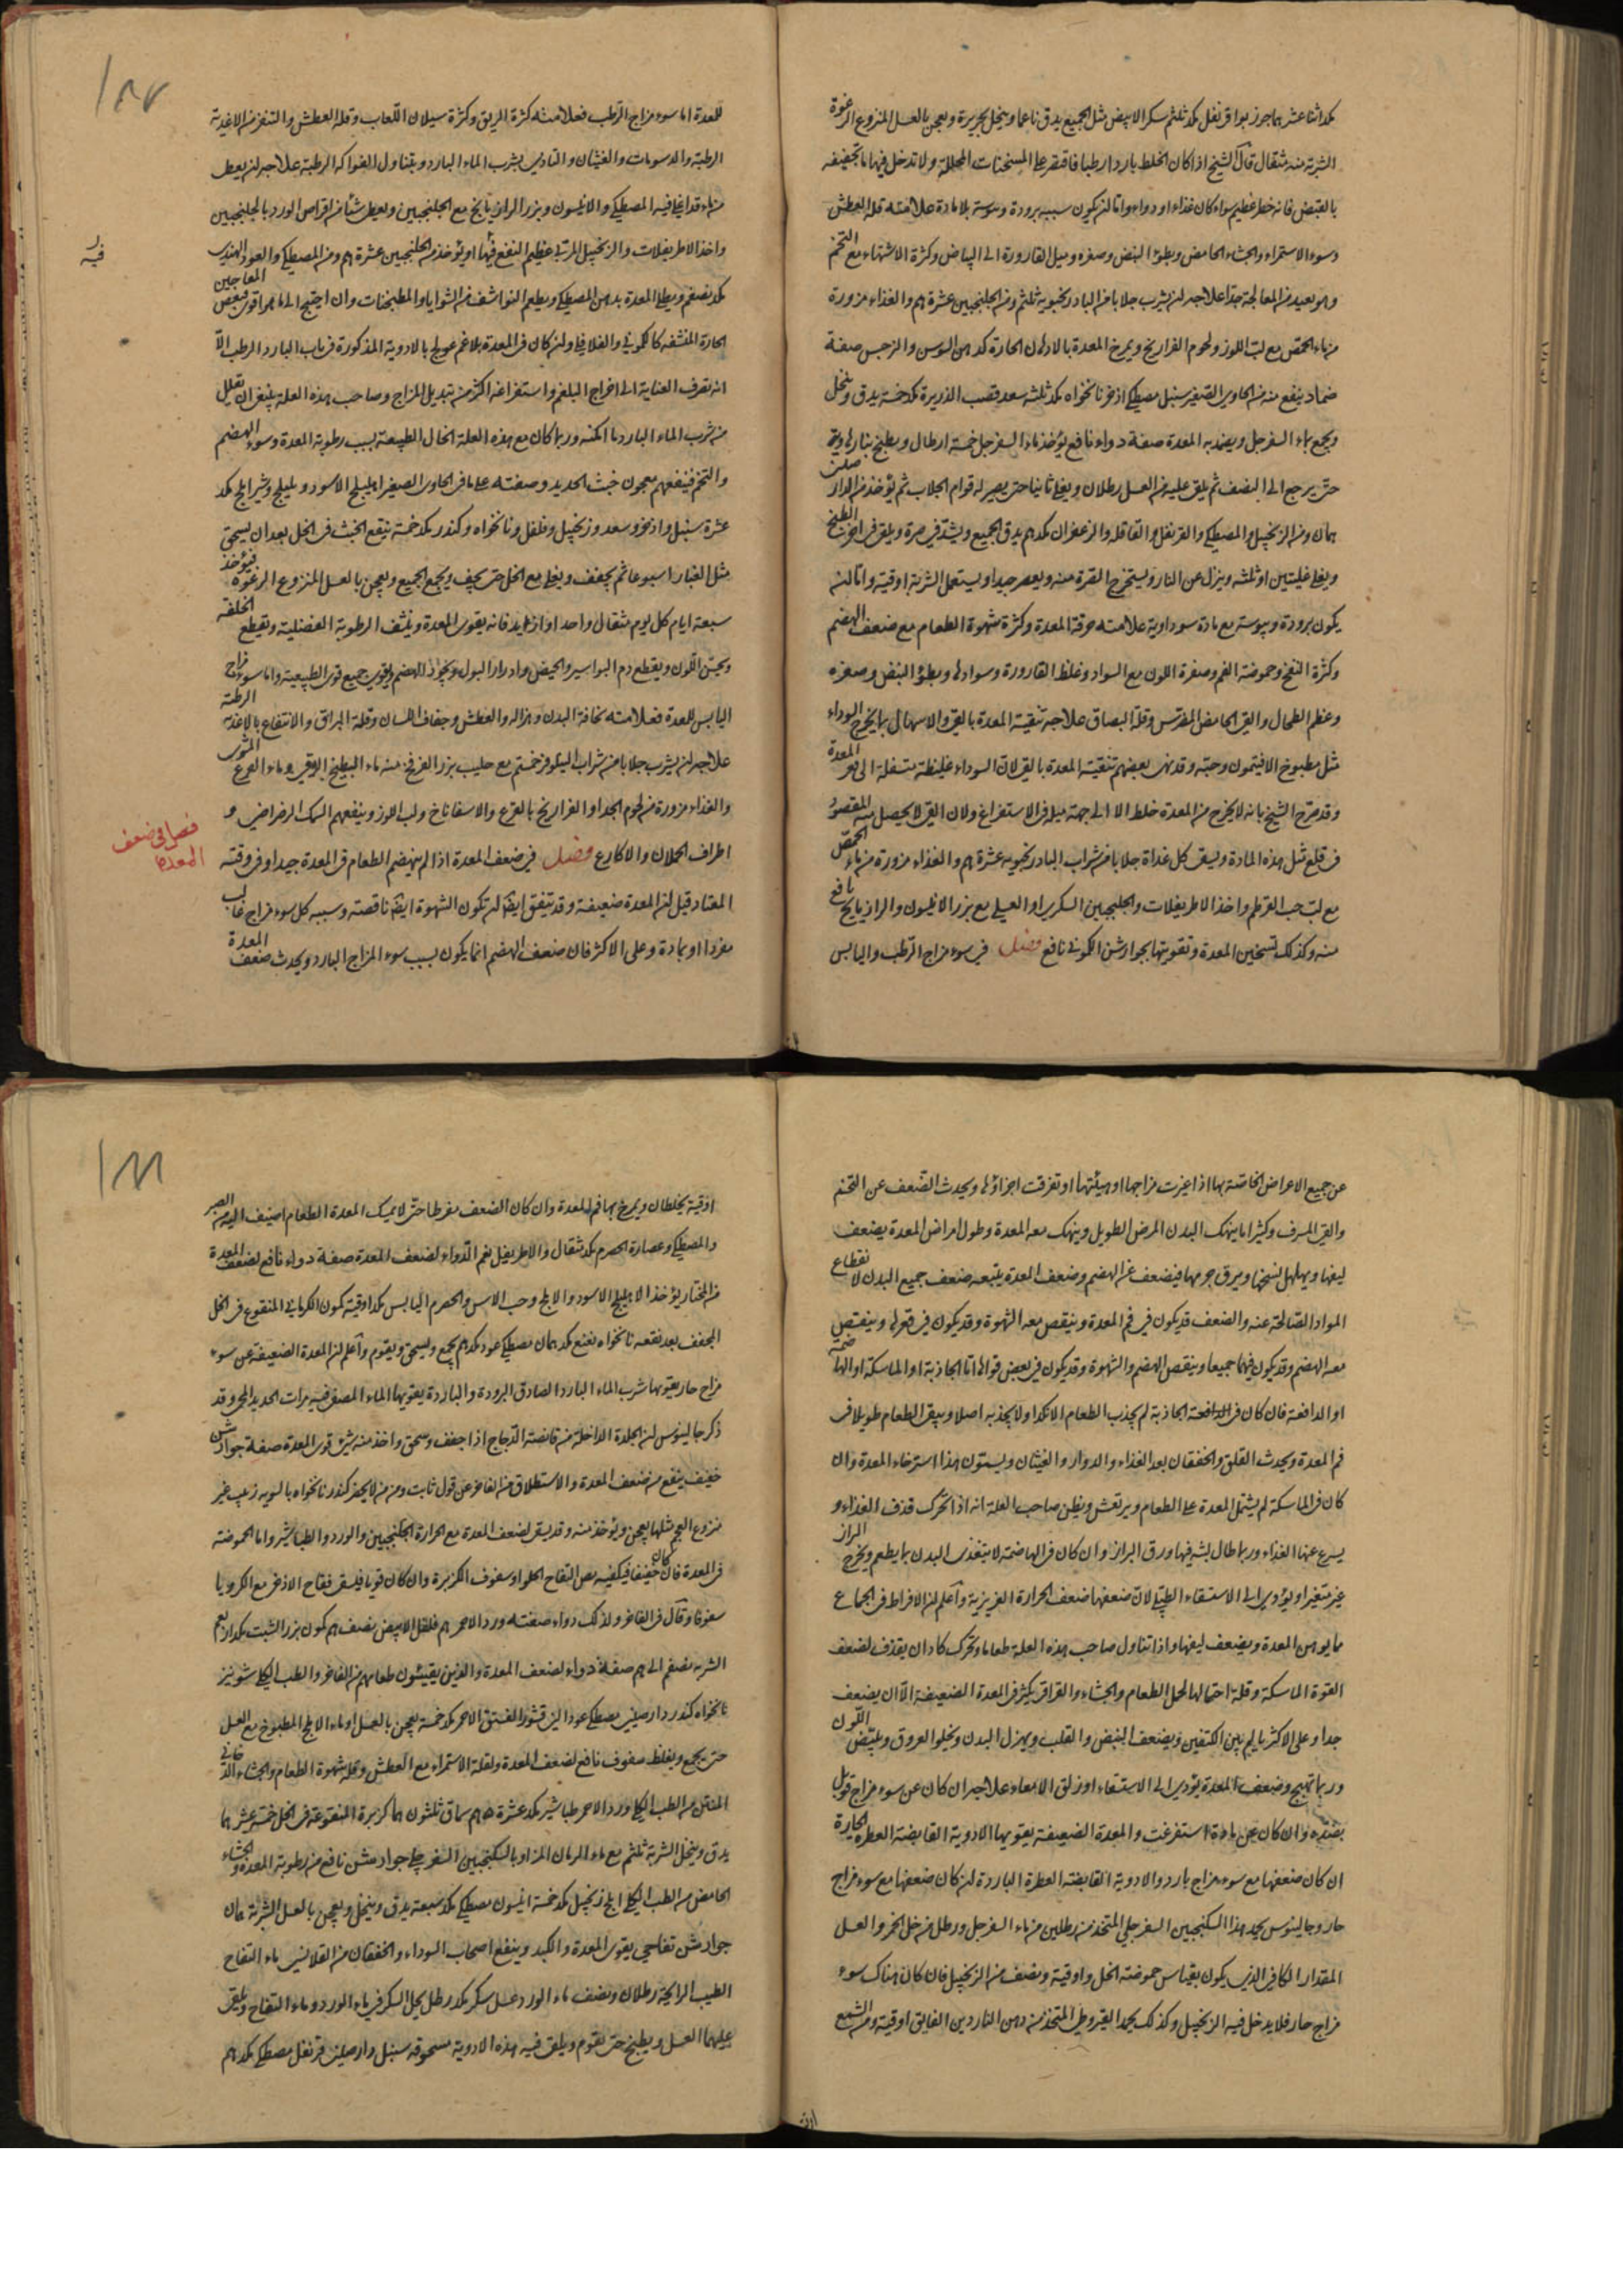 كد اثنا عشر هما جوز بوا قرنفل كد ثلثهم سكر الابيض مثل الجميع يدق ناعما وينخل بحريرة ويعجن بالعسل المنزوع الرغوة
الشربة منه مثقال قال الشيخ اذا كان الخلط باردا رطبا فاقتصر على المسخنات المحللة ولا تدخل فيها ما تجفيفه
بالقبض فانه خطر عظيم سواء كان غذاء او دواء واما ان يكون سببه برودة ويبوسة بلا مادة علامته قلة العطش
وسوء الاستمراء والجشاء الحامض وبطؤ النبض وصغره وميل القارورة الى البياض وكثرة الاشتهاء مع التخم
وهو بعيد من المعالجة جدا علاجه ان يشرب جلابا من البادرنجبوية ثلثهم ومن الجلنجبين عشرة هم والغذاء مزورة
من ماء الحمص مع لب اللوز ولحوم الفراريج ويمرخ المعدة بالادهان الحارة كدهن السوسن والنرجس صفة
ضماد ينفع منه من الحاوي الصغير سنبل مصطكي اذخر نانخواه كد ثلثه سعد قصب الذريرة كد خمسة يدق وينخل
ويجمع بماء السفرجل ويضمد به المعدة صفة دواء نافع يؤخذ ماء السفرجل خمسة ارطال ويطبخ بنار لينة
حتى يرجع الى النصف ثم يلق عليه من العسل رطلان ويغلى ثانيا حتى يصير له قوام الجلاب ثم يؤخذ من الدار صيني
همان ومن الزنجبيل والمصطكي والقرنفل والقاقلة والزعفران كد هم يدق الجميع ويشد في صرة ويلق في اخر الطبخ
ويغلى غليتين او ثلثه وينزل عن النار ويستخرج الصرة منه ويعصر جيدا ويستعمل الشربة اوقية واما ان
يكون برودة ويبوسة مع مادة سوداوية علامته حرقة المعدة وكثرة شهوة الطعام مع ضعف الهضم
وكثرة النفخ وحموضة الفم وصفرة اللون مع السواد وغلظ القارورة وسوادها وبطؤ النبض وصغره
وعظم الطحال والقئ الحامض المضرس وقلة البصاق علاجه تنقية المعدة بالقئ والاسهال بما يخرج السوداء
مثل مطبوخ الافتيمون وحبه وقد نهى بعضهم تنقية المعدة بالقئ لان السوداء غليظة متسفلة الى قعر المعدة
وقد صرح الشيخ بانه لا يخرج من المعدة خلط الا الى جهة ميله في الاستفراغ ولان القئ لا يحصل منه المقصود
في قلع مثل هذه المادة ويسقى كل غداة جلابا من شراب البادرنجبويه عشرة هم والغذاء مزورة من ماء الحمص
مع لب حب القرطم واخذ الاطريفلات والجلنجبين السكري او العسلي مع بزر الانيسون والرازيانج نافع
منه وكذلك تسخين المعدة وتقويتها بجوارشن الكموني نافع فصل في سوء مزاج الرطب واليابس
١٨٧
للمعدة اما سوء مزاج الرطب فعلامته كثرة الريق وكثرة سيلان اللعاب وقلة العطش والتنفر من الاغذية
الرطبة والدسومات والغثيان والتاذي بشرب الماء البارد وبتناول الفواكه الرطبة علاجه ان يعطى
من ماء قد اغلي فيه المصطكي والانيسون وبزر الرازيانج مع الجلنجبين ويعطى شئا من اقراص الورد بالجلنجبين
واخذ الاطريفلات والزنجبيل المربى عظيم النفع فيها او يؤخذ من الجلنجبين عشرة هم ومن المصطكي والعود الهندي
كد نصفهم ويطلى المعدة بدهن المصطكي ويطعم النواشف من الشوايا والمطجنات وان احتيج الى ما هو اقوى فبعض المعاجين
الحارة المنشفه كالكموني والفلافلي وان كان في المعدة بلاغم عولج بالادوية المذكورة في باب البارد الرطب الا
انه تصرف العناية الى اخراج البلغم واستفراغه اكثر من تبديل المزاج وصاحب هذه العلة ينبغي ان يقلل
من شرب الماء البارد ما امكنه وربما كان مع هذه العلة انحلال الطبيعة بسبب رطوبة المعدة وسوء الهضم
والتخم فينفعهم معجون خبث الحديد وصفته على ما في الحاوي الصغير اهليلج الاسود وبليلج وشير املج كد
عشرة سنبل واذخر وسعد وزنجبيل وفلفل ونانخواه وكندر كد خمسة ينقع الخبث في الخل بعد ان يسحق
مثل الغبار اسبوعا ثم يجفف ويغلى مع الخل حتى يجف ويجمع الجميع ويعجن بالعسل المنزوع الرغوة فيؤخذ
سبعة ايام كل يوم مثقال واحد او ازايد فانه يقوي المعدة وينشف الرطوبة الفضلية ويقطع الخلفة
ويحسن اللون ويقطع دم البواسير والحيض وادرار البول ويجود الهضم ويقوي جميع قوى الطبيعية واما سوء مزاج
اليابس للمعدة فعلامته نحافة البدن وهزاله والعطش وجفاف اللسان وقلة البزاق والانتفاع بالاغذية الرطبة
علاجه ان يشرب جلابا من شراب النيلوفر خمسهم مع حليب بزر الفرفخ منه ماء البطيخ الرقي وماء القرع المشوي
والغذاء مزورة من لحوم الجداء والفراريج بالقرع والاسفاناخ ولب اللوز وينفعهم السمك الرضراضي و
اطراف الحملان والاكارع فصل في ضعف المعدة اذا لم ينهضم الطعام في المعدة جيدا وفي وقته
المعتاد قيل ان المعدة ضعيفة وقد يتفق ايضا ان تكون الشهوة ايضا ناقصة وسببه كل سوء مزاج غالب
مفردا او بمادة وعلى الاكثر فان ضعف الهضم انما يكون بسبب سوء المزاج البارد ويحدث ضعف المعدة
فيه
فصل في ضعف
المعدة
عن جميع الاعراض الخاصة بها اذا غيرت مزاجها او هيئتها او تفرقت اجزاؤها ويحدث الضعف عن التخم
والقئ المسرف وكثيرا ما ينهك البدن المرض الطويل وينهك معه المعدة وطول امراض المعدة يضعف
ليفها ويهلهل نسجها ويرق جرمها فيضعف عن الهضم وضعف المعدة يتبعه ضعف جميع البدن لانقطاع
المواد الصالحة عنه والضعف قد يكون في فم المعدة وينقص معه الشهوة وقد يكون في قعرها وينقص
معه الهضم وقد يكون فيهما جميعا وينقص الهضم والشهوة وقد يكون في بعض قواها اما الجاذبة او الماسكة او الهاضمة
او الدافعة فان كان في الجاذبة لم يجذب الطعام الا نكدا ولا يجذبه اصلا ويبقى الطعام طويلا في
فم المعدة ويحدث القلق والخفقان بعد الغذاء والدوار والغثيان ويسمون هذا استرخاء المعدة وان
كان في الماسكة لم يشتمل المعدة على الطعام ويرتعش ويظن صاحب العلة انه اذا تحرك قذف الغذاء و
يسرع عنها الغذاء وربما طال لبثه فيها ورق البراز وان كان في الهاضمة لا يتغذى البدن بما يطعم ويخرج البراز
غير متغير او يؤدي الى الاستسقاء الطبلي لان ضعفها ضعف الحرارة الغريزية واعلم ان الافراط في الجماع
مما يوهن المعدة ويضعف ليفها واذا تناول صاحب هذه العلة طعاما وتحرك كاد ان يقذف لضعف
القوة الماسكة وقلة احتمالها لحمل الطعام والجشاء والقراقر يكثر في المعدة الضعيفة الا ان يضعف
جدا وعلى الاكثر يالم بين الكتفين ويضعف النبض والقلب ويهزل البدن ويخلو العروق ويبيض اللون
وربما تهيج وضعف المعدة يؤدي الى الاستسقاء او زلق الامعاء علاجه ان كان عن سوء مزاج قوبل
بضده وان كان عن مادة استفرغت والمعدة الضعيفة يقويها الادوية القابضة العطرة الحارة
ان كان ضعفها مع سوء مزاج بارد والادوية القابضة العطرة الباردة ان كان ضعفها مع سوء مزاج
حار وجالينوس يحمد هذا السكنجبين السفرجلي المتخذ من رطلين من ماء السفرجل ورطل من خل الخمر والعسل
المقدار الكافي الذي يكون بقياس حموضة الخل واوقية ونصف من الزنجبيل فان كان هناك سوء
مزاج حار فلا يدخل فيه الزنجبيل وكذلك يحمد القيروطي المتخذ من دهن الناردين الفايق اوقية ومن الشمع
١٨٨
اوقية يخلطان ويمرخ بهما فم المعدة وان كان الضعف مفرطا حتى لا يمسك المعدة الطعام اضيف اليه من الصبر
والمصطكي وعصارة الحصرم كد مثقال والاطريفل نعم الدواء لضعف المعدة صفة دواء نافع لضعف المعدة
من المختار يؤخذ الاهليلج الاسود والاملج وحب الاس والحصرم اليابس كد اوقية كمون الكرماني المنقوع في الخل
المجفف بعد نقعه نانخواه نعنع كد همان مصطكي عود كد هم يجمع ويسحق ويقوم واعلم ان المعدة الضعيفة عن سوء
مزاج حار يقويها شرب الماء البارد الصادق البرودة والباردة يقويها الماء المطفى فيه مرات الحديد المحمى وقد
ذكر جالينوس ان الجلدة الداخلة من قانصة الدجاج اذا جفف وسحق واخذ منه شئ قوى المعدة صفة جوارش
خفيف ينفع من ضعف المعدة والاستطلاق من الفاخر عن قول ثابت ومن لا يحضر كندر نانخواه بالسوية زبيب غير
منزوع العجم مثلها يعجن ويؤخذ منه وقد يسقى لضعف المعدة مع الحرارة الجلنجبين والورد والطباشير واما الحموضة
في المعدة فان كان خفيفا فيكفيه مص التفاح الحلو او سفوف الكزبرة وان كان قويا فليسق فقاح الاذخر مع الكرويا
سفوفا وقال في الفاخر ولذلك دواء صفته ورد الاحمر هم فلفل الابيض نصف هم كمون بزر الشبت كد اربعهم
الشربة نصفهم الى هم صفة دواء لضعف المعدة والذين يقيئون طعامهم من الفاخر والطب الكلي شونيز
نانخواه كندر دارصيني مصطكي عود الني قشور الفستق الاحمر كد خمسة يعجن بالعسل او ماء الاملج المطبوخ مع العسل
حتى يجمع ويغلظ سفوف نافع لضعف المعدة ولقلة الاستمراء مع العطش وقلة شهوة الطعام والجشاء الدخاني
المنتن من الطب الكلي ورد الاحمر طباشير كد عشرة هم سماق ثلثون هما كزبرة المنقوعة في الخل خمسة عشر هما
يدق وينخل الشربة ثلثهم مع ماء الرمان المز او بالسكنجبين السفرجلي جوارشن نافع من رطوبة المعدة والجشاء
الحامض من الطب الكلي املج زنجبيل كد خمسة انيسون مصطكي كد سبعة يدق وينخل ويعجن بالعسل الشربة همان
جوارشن تفاحي يقوي المعدة والكبد وينفع اصحاب السوداء والخفقان من القلانسي ماء التفاح
الطيب الرايحة رطلان ونصف ماء الورد عسل سكر كد رطل يحل السكر في ماء الورد وماء التفاح ويلقى
عليهما العسل ويطبخ حتى يقوم ويلقى فيه هذه الادوية مسحوقه سنبل دارصيني قرنفل مصطكي كد هم